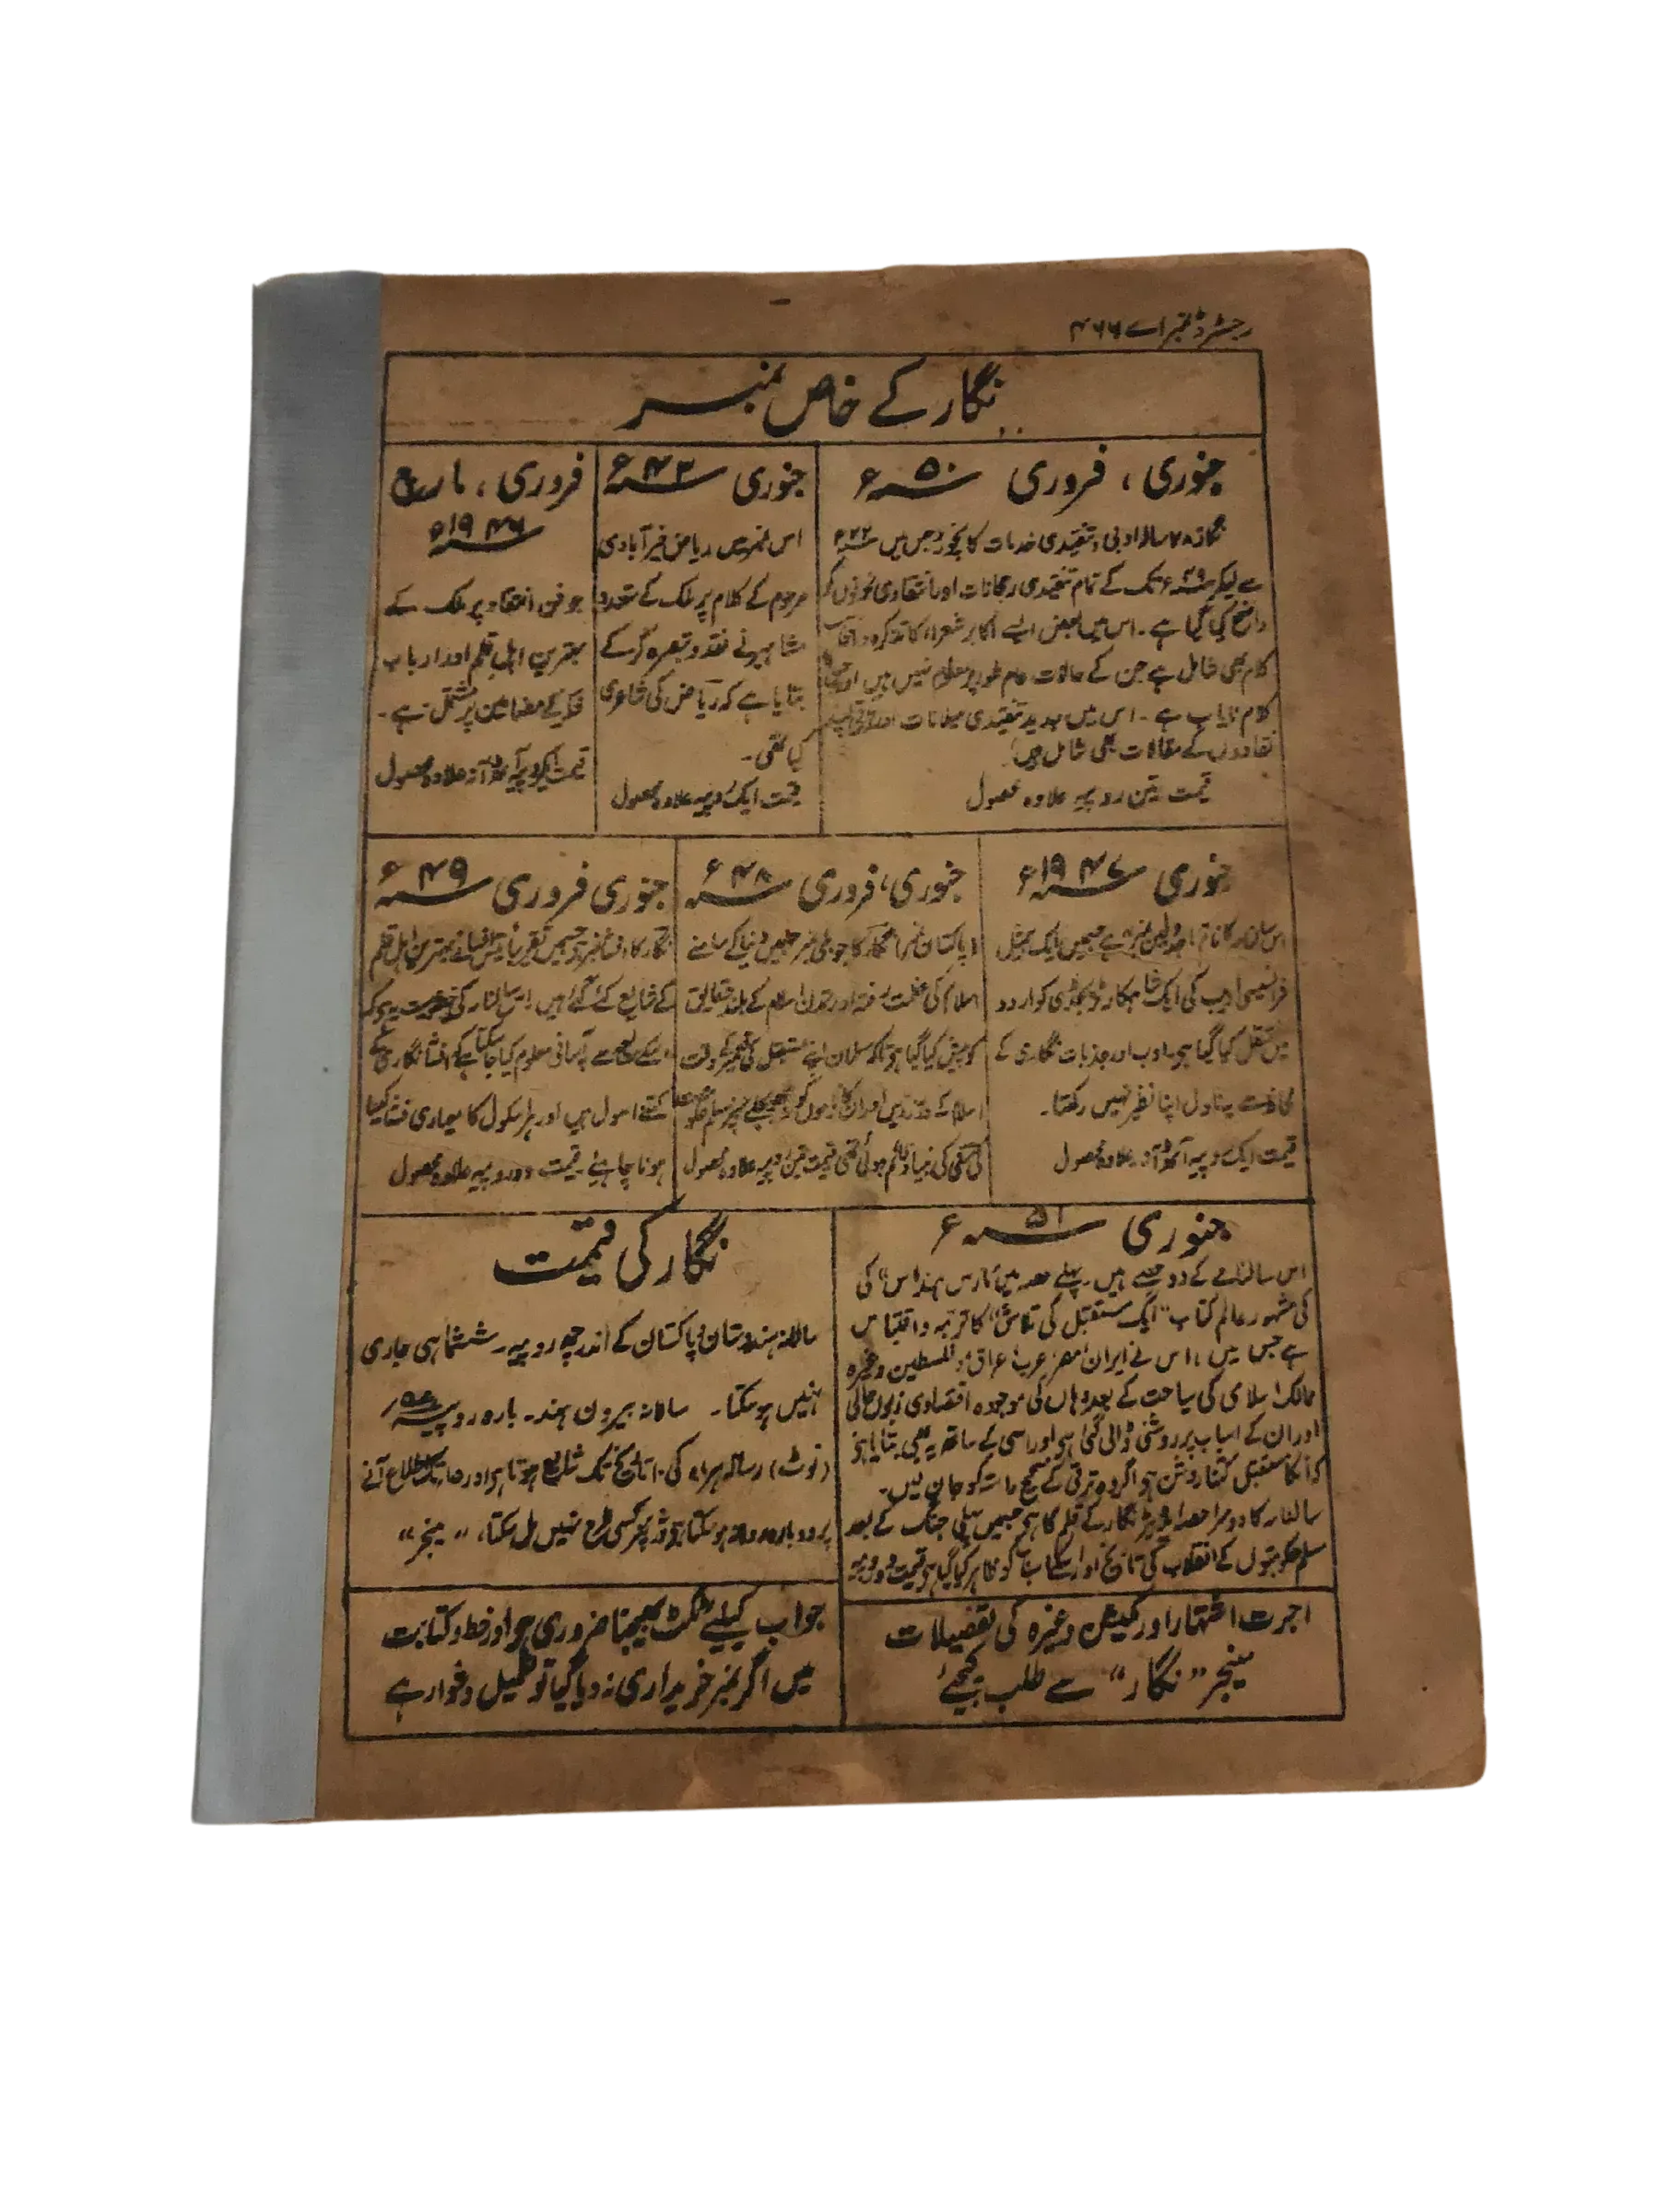 رجسٹرڈ نمبر اے ۴۶۶
نگار کے خاص نمبر
جنوری ، فروری ۵۰ء
نگار ۲۷ سالہ ادبی و تنقیدی خدمات کا نچوڑ جس میں ۲۲ء
سے لیکر ۴۹ء تک کے تمام تنقیدی رجحانات اور انتقادی نمونوں کو
واضح کیا گیا ہے۔ اس میں بعض ایسے اکابر شعراء کا تذکرہ و انتخاب
کلام بھی شامل ہے جن کے حالات عام طور پر معلوم نہیں ہیں اور جن کا
کلام نایاب ہے۔ اس میں جدید تنقیدی میلانات اور ترقی پسند
نقادوں کے مقالات بھی شامل ہیں
قیمت تین روپیہ علاوہ محصول
جنوری ۴۳ء
اس نمبر میں ریاض خیرآبادی
مرحوم کے کلام پر ملک کے متعدد
مشاہیر نے نقد و تبصرہ کر کے
بتایا ہے کہ ریاض کی شاعری
کیا تھی۔
قیمت ایک روپیہ علاوہ محصول
فروری ، مارچ
۱۹۴۶ء
جو فن انتقاد پر ملک کے
بہترین اہل قلم اور ارباب
فکر کے مضامین پر مشتمل ہے۔
قیمت ایک روپیہ آٹھ آنہ علاوہ محصول
جنوری ۱۹۴۷ء
اس سالنامہ کا نام ہے جسمیں ایک بیمثل
فرانسیسی ادیب کی ایک شاہکار ٹریجڈی کو اردو
میں منتقل کیا گیا ہی۔ ادب اور جذبات نگاری کے
لحاظ سے یہ ناول اپنا نظیر نہیں رکھتا۔
قیمت ایک روپیہ آٹھ آنہ علاوہ محصول
جنوری ، فروری ۴۸ء
(پاکستان نمبر) نگار کا جوبلی نمبر جسمیں دنیا کے سامنے
اسلام کی عظمت رفتہ اور تمدن اسلام کے بلند حقائق
کو پیش کیا گیا ہو تاکہ مسلمان اپنے مستقبل کی تعمیر کے وقت
اسلام کے اور ان کو نہ بھولے جنپر مسلم حکومت
کی ترقی کی بنیاد قائم ہوئی تھی قیمت تین روپیہ علاوہ محصول
جنوری فروری ۴۹ء
نگار کا افسانہ نمبر جسمیں تقریباً افسانے بہترین اہل قلم
کے شایع کئے گئے ہیں اس سالنامہ کی خصوصیت یہ ہو کہ
اسکے مطالعہ سے بآسانی معلوم کیا جاسکتا ہے کہ افسانہ نگاری کے
کتنے اسکول ہیں اور ہر اسکول کا معیاری فسانہ کیسا
ہونا چاہیئے۔ قیمت دو روپیہ علاوہ محصول
جنوری ۵۱ء
اس سالنامے کے دو حصے ہیں۔ پہلے حصہ میں مارس ہنڈاس کی
کی مشہور عالم کتاب "ایک مستقبل کی تلاش" کا ترجمہ و اقتباس
ہے جسمیں اس نے ایران، مصر، عرب، عراق، فلسطین وغیرہ
ممالک اسلامی کی سیاحت کے بعد وہاں کی موجودہ اقتصادی زبوں حالی
اور ان کے اسباب پر روشنی ڈالی گئی ہو اور اسی کے ساتھ یہ بھی بتایا ہو
کہ انکا مستقبل کتنا روشن ہو اگر وہ ترقی کے صحیح راستہ کو جان لیں۔
سالنامہ کا دوسرا حصہ اڈیٹر نگار کے قلم کا ہی جسمیں پہلی جنگ کے بعد
مسلم حکومتوں کے انقلاب کی تاریخ اور اسکے اسباب کو ظاہر کیا گیا ہو قیمت دو روپیہ
نگار کی قیمت
سالانہ ہندوستان و پاکستان کے اندر چھ روپیہ۔ ششماہی جاری
نہیں ہو سکتا۔ سالانہ بیرون ہند۔ بارہ روپیہ
(نوٹ) رسالہ ہر ماہ کی ۱۰ تاریخ تک شایع ہوتا ہو اور ۲۵ تک اطلاع آنے
پر دوبارہ روانہ ہو سکتا ہو ورنہ پھر کسی طرح نہیں مل سکتا، "میجر"
اجرت اشتہار اور کمیشن وغیرہ کی تفصیلات
مینجر "نگار" سے طلب کیجئے
جواب کیلئے ٹکٹ بھیجنا ضروری ہو اور خط و کتابت
میں اگر نمبر خریداری نہ دیا گیا تو تعمیل دشوار ہے